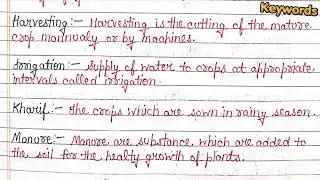 Keywords
Harvesting:- Harvesting is the cutting of the mature
crop mannualy or by machines.
Irrigation:- Supply of water to crops at appropriate
intervals called irrigation.
Kharif:- The crops which are sown in rainy season.
Manure:- Manure are substance which are added to
the soil for the healty growth of plants.